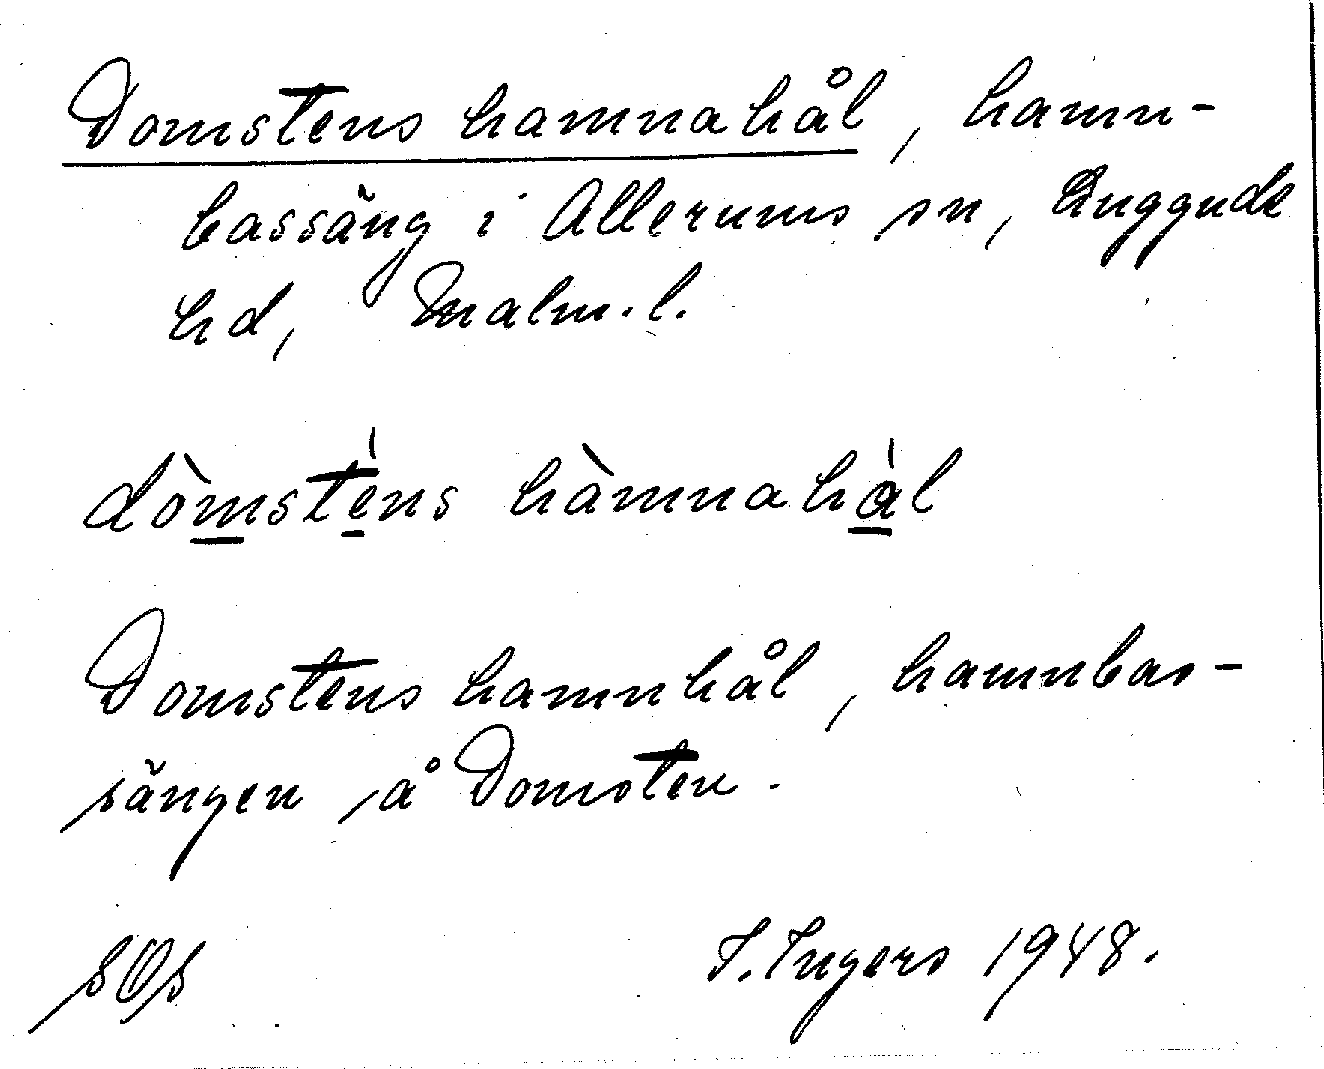 Domstens hamnahål, hamn-
bassäng i Allerums sn, Luggude
hd, Malm. l.
dòmsténs hàmnahål
Domstens hamnhål, hamnbas-
sängen å Domsten.
I. Ingers 1948.